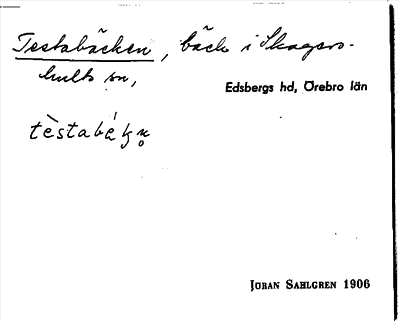 Testabäcken, bäck i Skagers-
hults sn,
Edsbergs hd, Örebro län
tèstabékn̥
JÖRAN SAHLGREN 1906